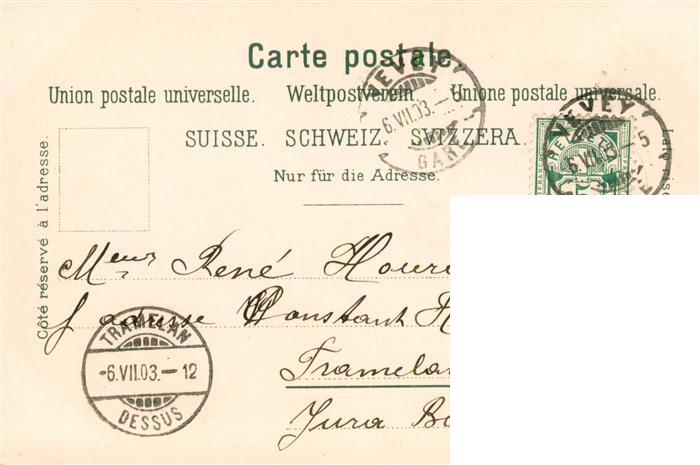 Carte postale.
Union postale universelle. Weltpostverein. Unione postale universale.
SUISSE. SCHWEIZ. SVIZZERA.
Nur für die Adresse.
Côté réservé à l'adresse.
VEVEY
6.VII.03.
GARE
VEVEY
6.VII.03.-5
HELVETIA
5
Meur René
adresse Constant
Jura
TRAMELAN
-6.VII.03.-12
DESSUS